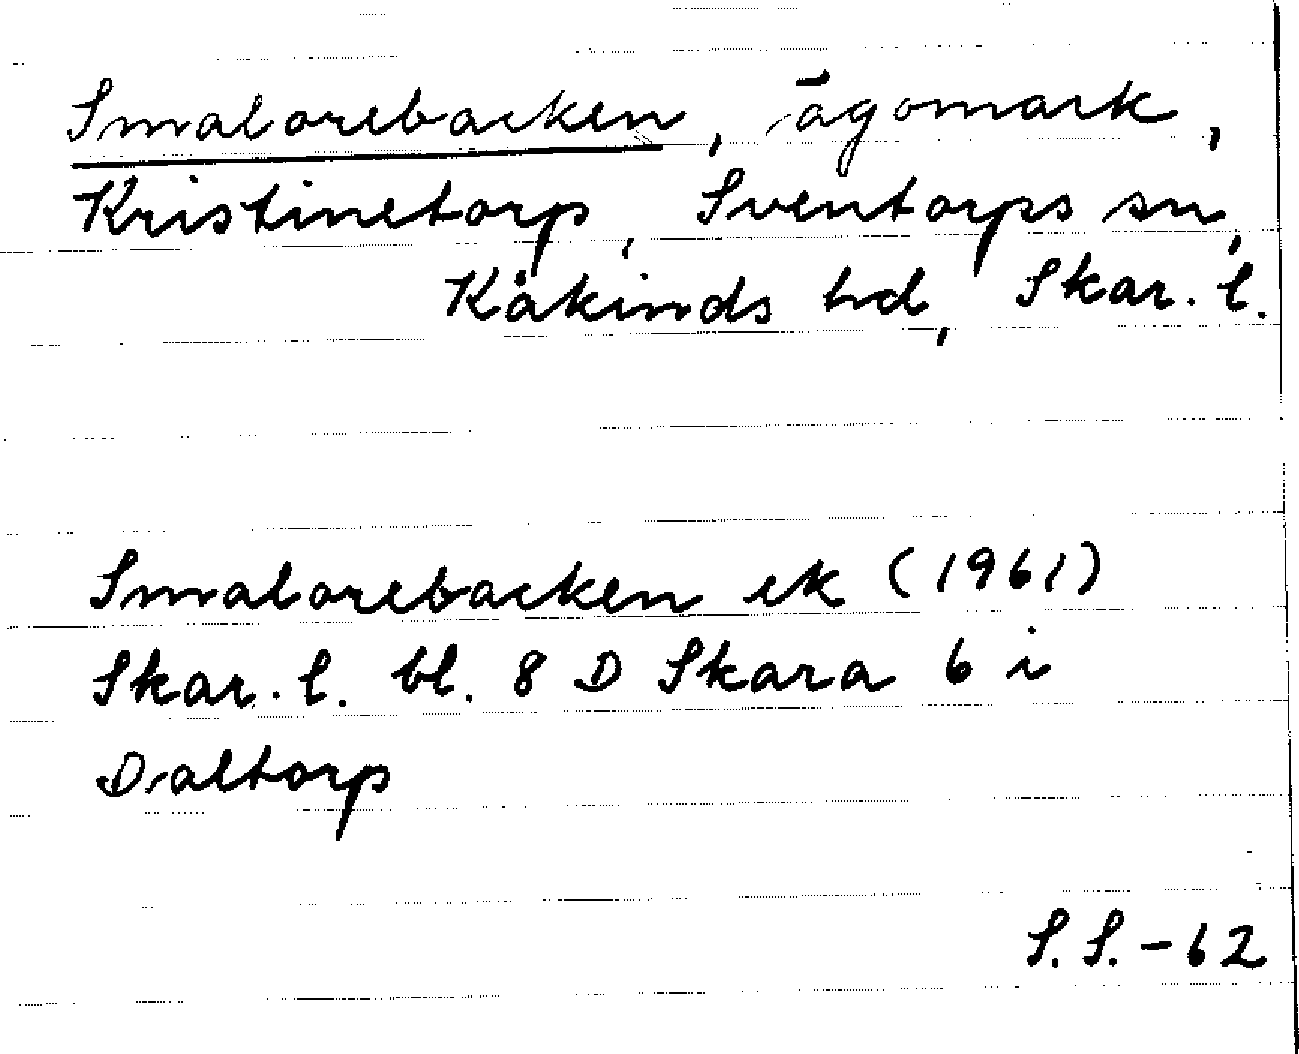 Smalorebacken, ägomark,
Kristinetorp, Sventorps sn,
Kåkinds hd, Skar. l.
Smalorebacken ek (1961)
Skar. l. bl. 8 D Skara 6 i
Daltorp
S. S. - 62